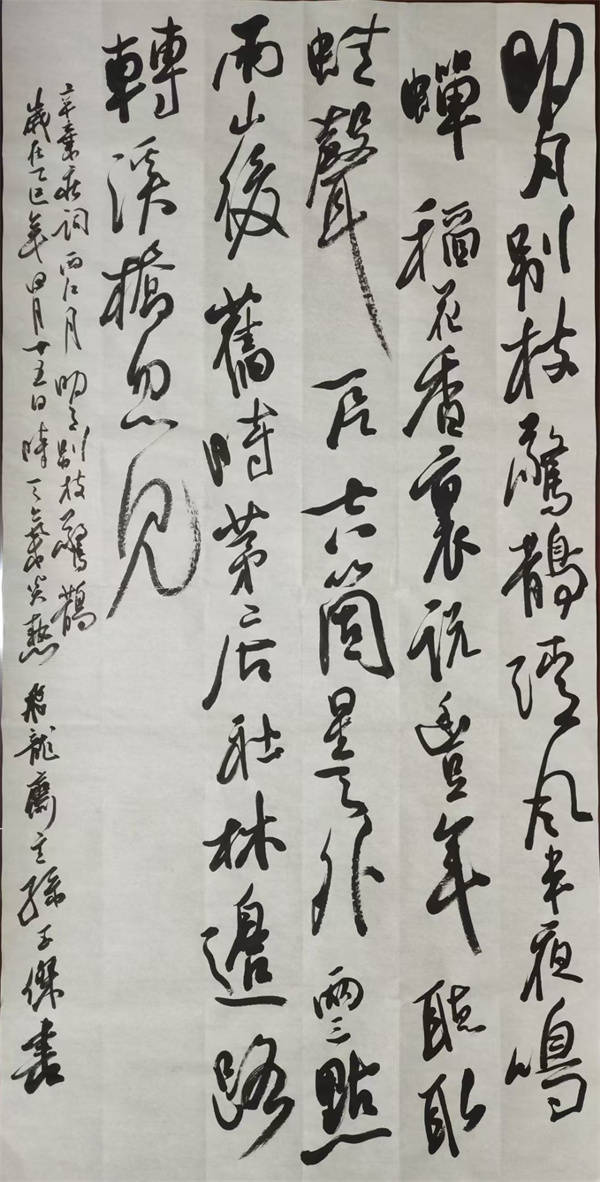 明月别枝驚鵲清風半夜鳴
蟬稻花香裏説豐年聽取
蛙聲一片七八箇星天外兩三點
雨山後舊時茅店社林邊路
轉溪橋忽見
辛棄疾詞西江月明月别枝驚鵲
歲在乙巳年四月十五日時天氣炎熱飛龍齋主孫傑書